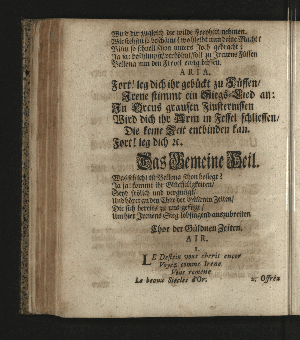 Wird dir zugleich die wilde Freyheit nehmen.
Wie stehst du beschämt! wo bleibet nun deine Macht?
Bistu so schnell schon unters Joch gebracht?
zu Irenens Füssen
Bellona nun den Frevel ewig büssen.
ARIA.
Fort! leg dich ihr gebückt zu Füssen/
Irene stimmt ein Sieges-Lied an:
In Orcus grausen Finsternissen
Wird dich ihr Arm in Fessel schliessen/
Die keine Zeit entbinden kan.
Fort! leg dich ꝛc.
Das Gemeine Heil.
Was seh ich? ist Bellona schon besiegt?
Ja ja! kommt ihr Glückseligkeiten/
Seyd frölich und vergnügt/
Und höret an den Chor der Güldenen Zeiten/
Die sich bereits zu uns gefügt/
Um hier Irenens Sieg lobsingend auszubreiten.
Chor der Güldnen Zeiten.
AIR.
1.
LE Destin vous cherit encor
Voyez comme Irene
Vous ramene
Le beaux Siecles d'Or.
2. Offrez